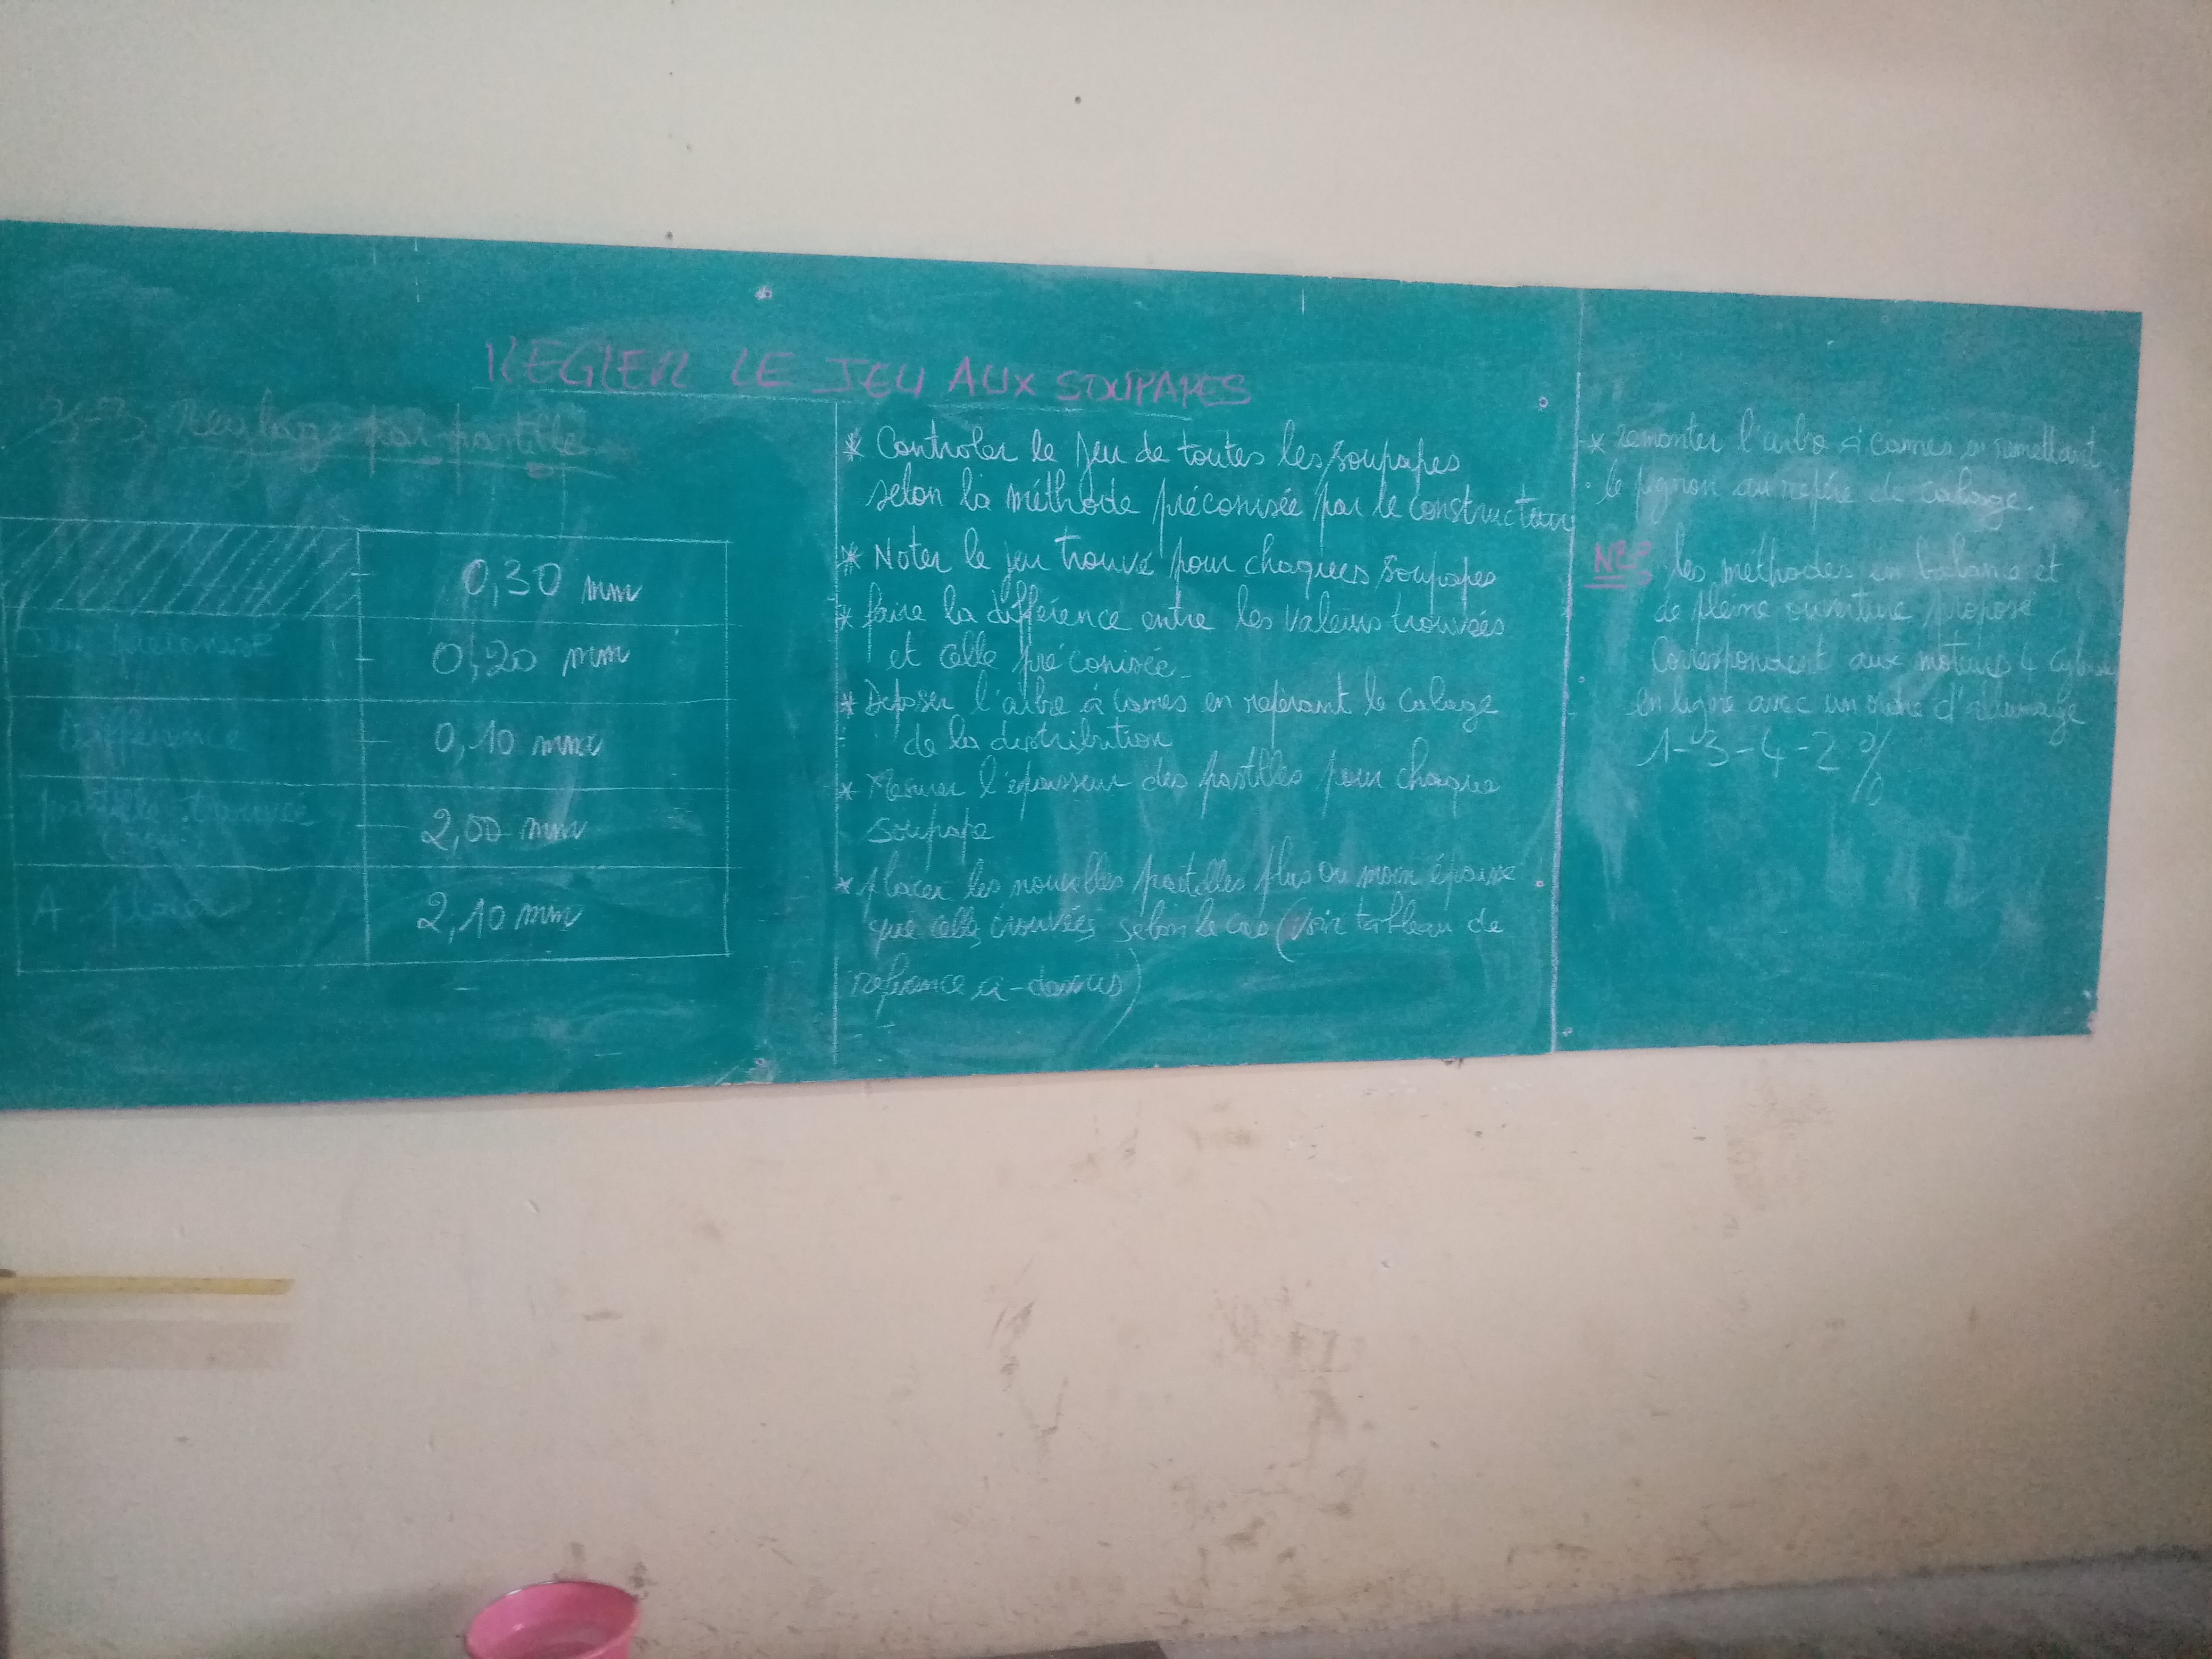 REGLER LE JEU AUX SOUPAPES
3-3 Reglage par pastille
0,30 mm
Jeu préconisé 0,20 mm
Différence 0,10 mm
pastille trouvée 2,00 mm
A placer 2,10 mm
* Controler le jeu de toutes les soupapes
selon la méthode préconisée par le constructeur
* Noter le jeu trouvé pour chaques soupapes
* faire la différence entre les valeurs trouvées
et celle préconisée
* Déposer l'arbre à cames en repérant le calage
de la distribution
* Mesurer l'épaisseur des pastilles pour chaque
soupape
* placer les nouvelles pastilles plus ou moin épaisse
que celles trouvées selon le cas (voir tableau de
reférence ci-dessus)
* remonter l'arbre à cames en remettant
le pignon au repère de calage.
NB: les méthodes en balance et
de pleine ouverture proposé
Correspondent aux moteurs 4 cylindres
en ligne avec un ordre d'allumage
1-3-4-2 %